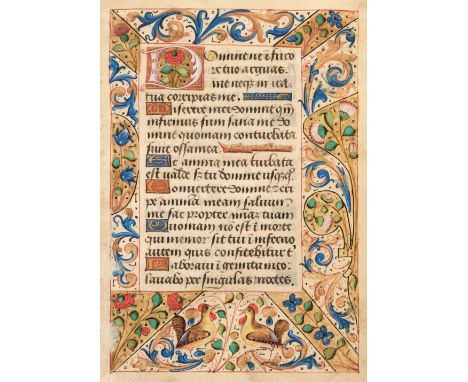 Domine ne ĩ furo
re tuo arguas
me neqz in ira
tua corripias me.
Miserere mei domine qm̃
infirmus sum sana me do
mine quoniam conturbata
sunt ossa mea
Et anima mea turbata
est valde sz tu domine usqzq̃
Convertere domine z eri
pe animam meam salvum
me fac propter miãz tuam
Quoniam nõ est ĩ morte
qui memor sit tui ĩ inferno
autem quis confitebitur t̃
Laboravi ĩ gemitu meo
lavabo per singulas noctes.